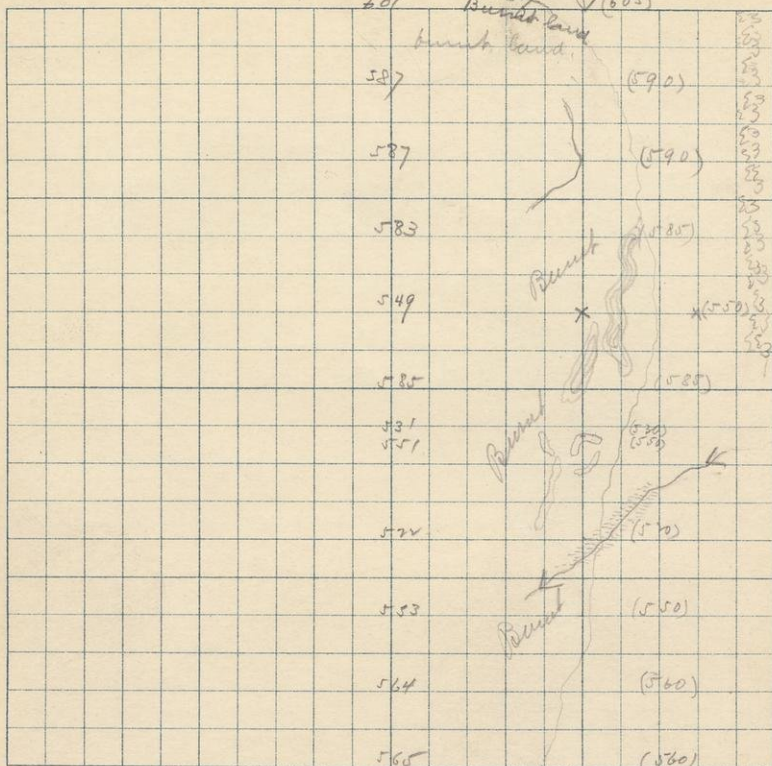 601 Burnt land (605)
burnt land
587 (590)
587 (590)
583 (585)
Burnt
549 x x(550)
585 (585)
Burnt
531 (530)
551 (550)
522 (520)
553 (550)
Burnt
564 (560)
565 (560)